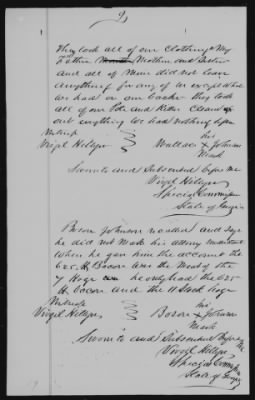 They took all of our Clothing My
Father Mother and Sister
and all of Mine did not leave
anything for any of us except what
we had on our backs they took
all of our and Clean
out everything we had nothing
Witness his
Virgil Hillyer Wallace X Johnson
Mark
Sworn to and Subscribed before me
Virgil Hillyer
Special Commr
State of Georgia
Johnson recalled and says
he did not Make his allowy
When he gave him the account the
625 lb Bacon was the Meat of the
7 Hogs he only had the 625
lb Bacon and the 11 Stock Hogs
Witness his
Virgil Hillyer X Johnson
Mark
Sworn to and Subscribed before me
Virgil Hillyer
Special Commr
State of Georgia